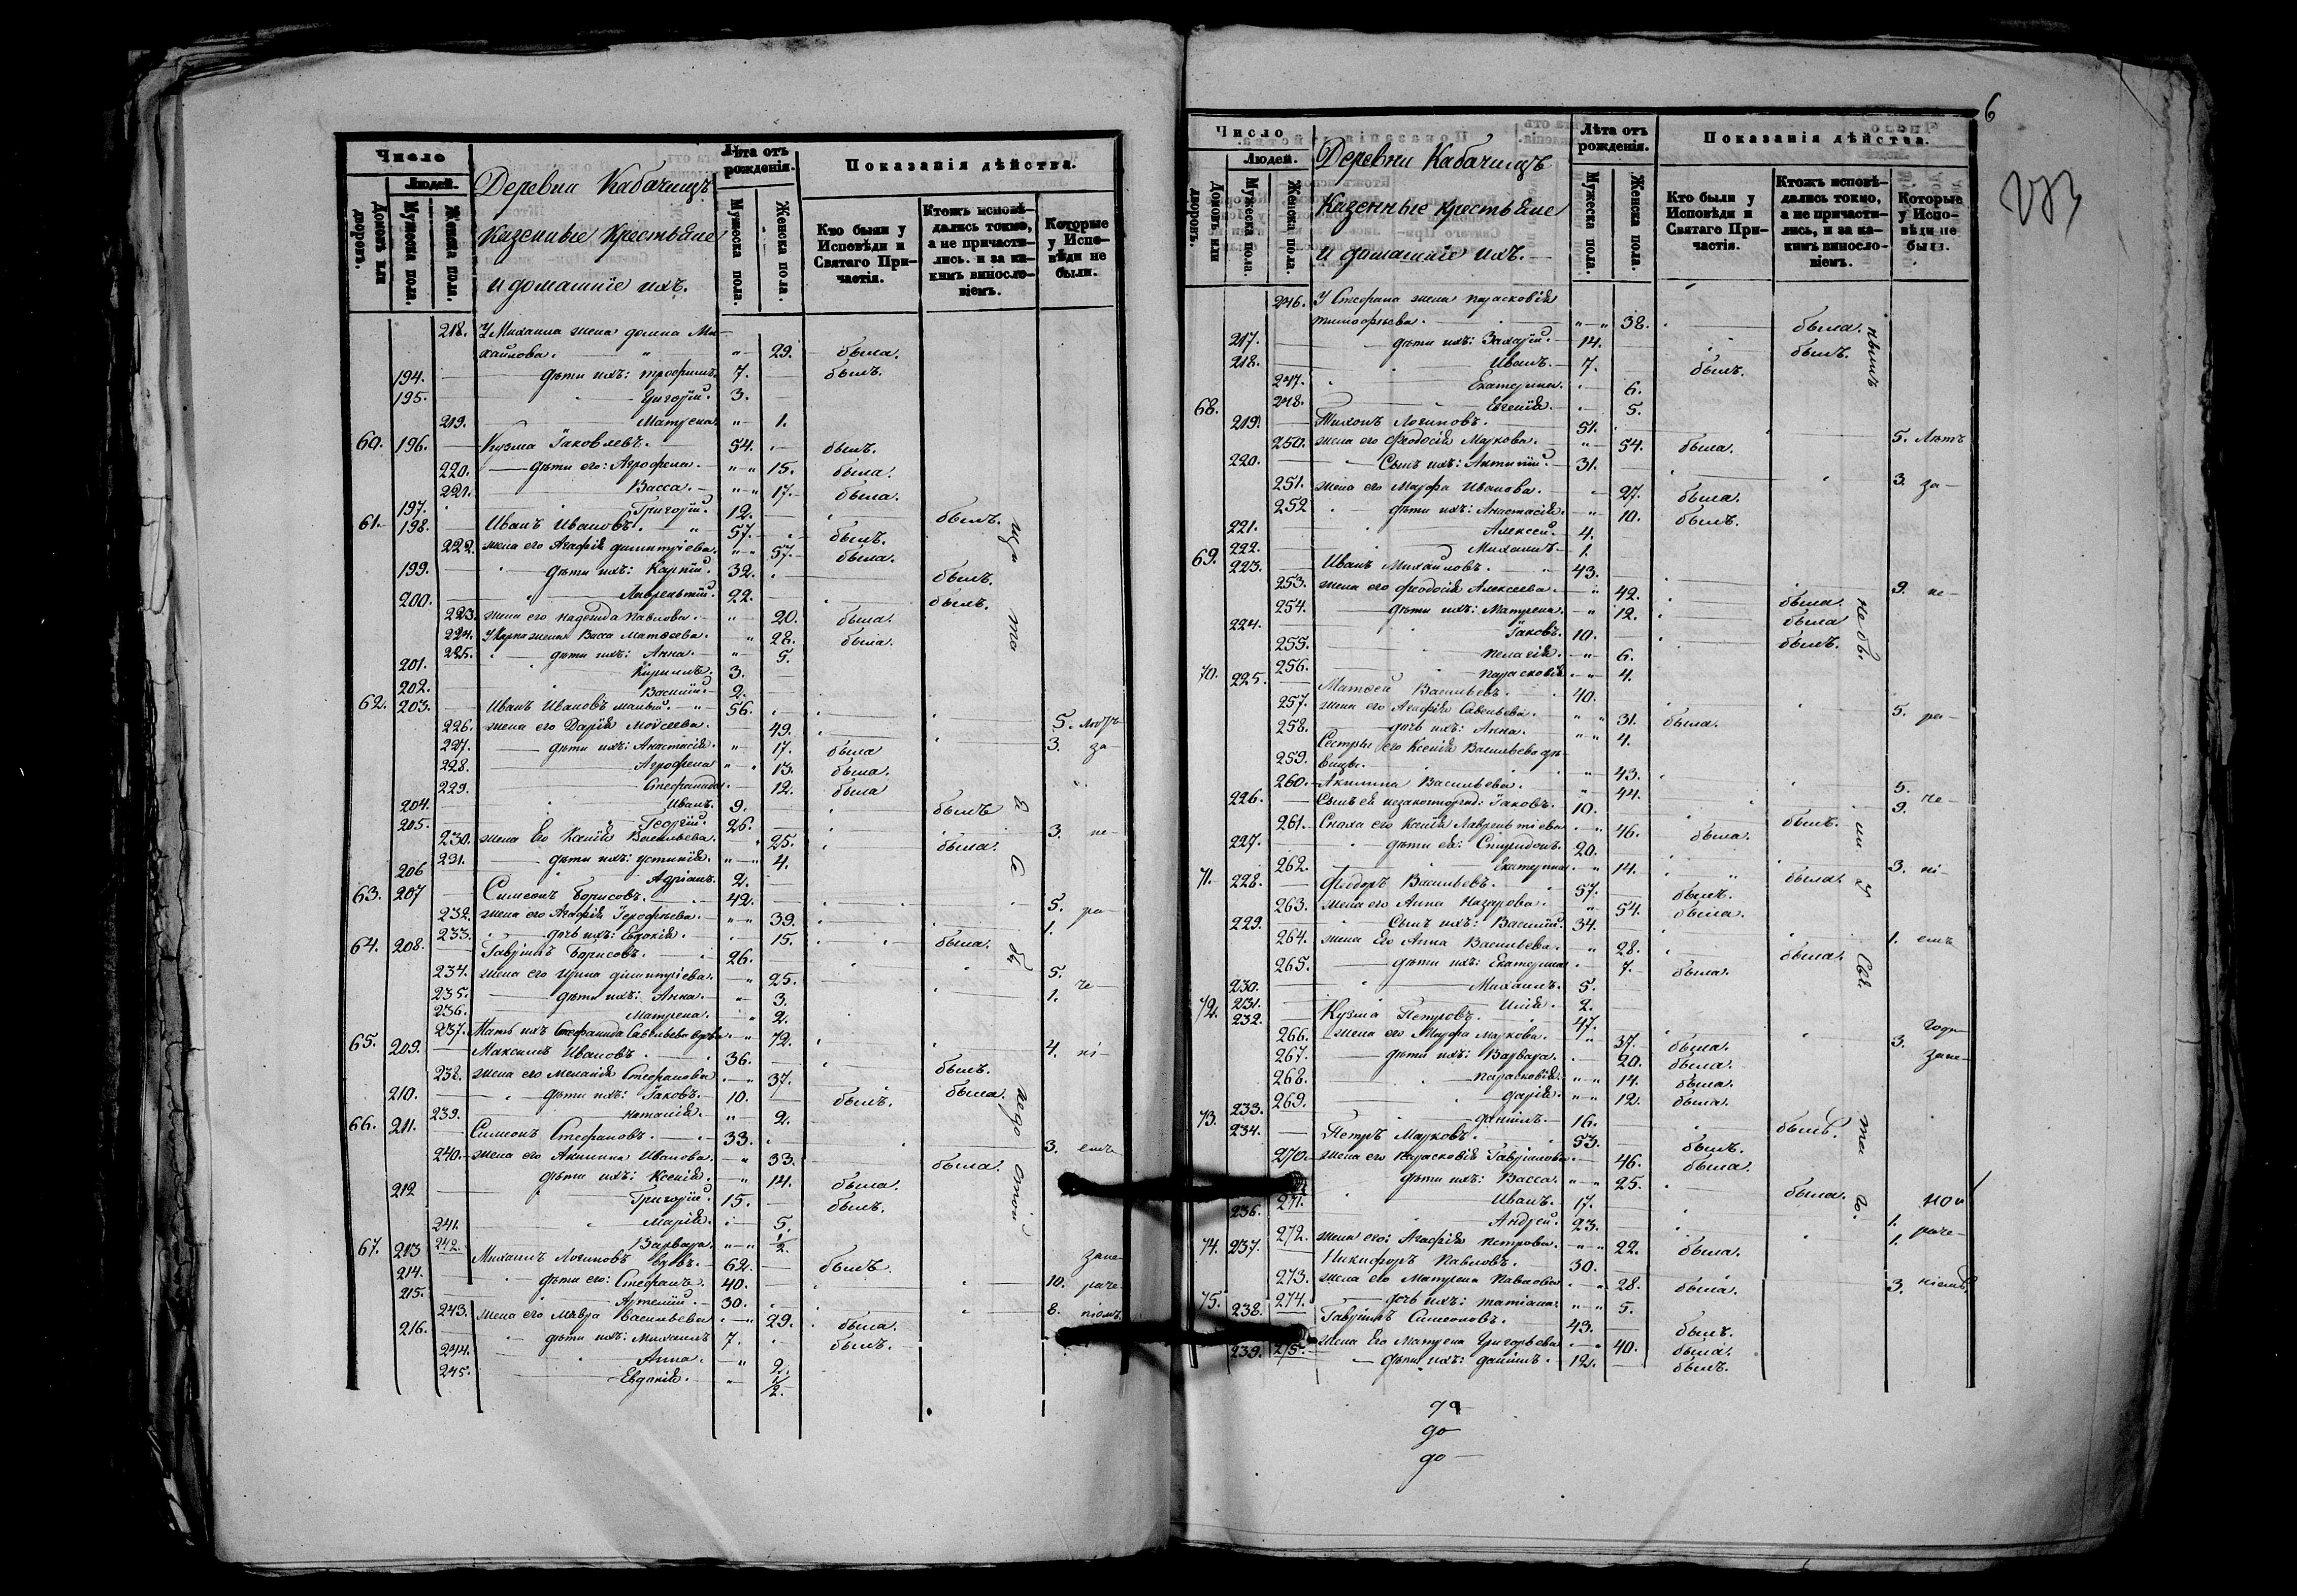 Число
Домовъ или дворовъ.
Людей.
Мужеска пола.
Женска пола.
Деревни Кабачищъ
Казенные Крестьяне
и домашніе ихъ.
Лѣта отъ рожденія.
Мужеска пола.
Женска пола.
Показанія дѣйства.
Кто были у Исповѣди и Святаго Причастія.
Ктожъ исповѣдались токмо, а не причастились, и за какимъ винословіемъ.
Которые у Исповѣди не были.
218. У Михаила жена Домна Ми-
хайлова. 29. была.
194. дѣти ихъ: Трофимъ. 7. былъ.
195. Григорій. 3.
219. Матрена. 1.
60. 196. Кузма Іаковлевъ. 54. былъ.
220. дѣти его: Агрофена. 15. была.
221. Васса. 17. была.
197. Григорій. 12. былъ.
61. 198. Иванъ Ивановъ. 57. былъ.
222. жена его Агафія Димитріева. 57. была.
199. дѣти ихъ: Карпій. 32. былъ.
200. Лаврентій. 22. былъ.
223. жена его Надежда Павлова. 20. была.
224. У Карпа жена Васса Матѳеева. 28. была.
225. дѣти ихъ: Анна. 5.
201. Кириллъ. 3.
202. Василій. 2.
62. 203. Иванъ Ивановъ малый. 56. 5. Лѣтъ
226. жена его Дарія Моѵсеева. 49. 3. за
227. дѣти ихъ: Анастасія. 17. была
228. Агрофена 13. была.
229. Стефанида. 12. была
204. Иванъ. 9. былъ
205. Георгій. 26. 3. не-
230. жена Его Ксенія Васильева. 25. была.
231. дѣти ихъ: Устинія. 4.
206 Адріанъ. 2.
63. 207 Симеонъ Борисовъ. 42. 5. ра-
232. жена его Агафія Іерофѣева. 39. 1.
233. дочь ихъ: Евдокія. 15. была.
64. 208. Гавріилъ Борисовъ. 26. 5.
234. жена его Ирина Димитріева. 25. 1. че-
235. дѣти ихъ: Анна. 3.
236. Матрена. 2.
237. Мать ихъ Стефанида Савельева вдова. 72. 4. ні-
65. 209. Максимъ Ивановъ. 36. былъ.
238. жена его Меланія Стефанова 37. была.
210. дѣти ихъ: Іаковъ. 10. былъ.
239. Наталія. 2.
66. 211. Симеонъ Стефановъ. 33. 3. емъ
240. жена его Акилина Иванова. 33. была.
дѣти ихъ: Ксенія. 14. была.
212 Григорій. 15. былъ.
241. Марія. 5.
242. Варвара. 1/2.
67. 213 Михаилъ Логиновъ вдовъ. 62. былъ. зане-
214. дѣти его: Стефанъ. 40. 10. раче-
215. Артемій. 30. 8. ніемъ
243. жена его Мавра Васильева 29. была.
216. дѣти ихъ: Михаилъ 7. былъ.
244. Анна. 2.
245. Евдокія. 1/2.
6
Число
Домовъ или дворовъ.
Людей.
Мужеска пола.
Женска пола.
Деревни Кабачищъ
Казенные крестьяне
и домашніе ихъ.
Лѣта отъ рожденія.
Мужеска пола.
Женска пола.
Показанія дѣйства.
Кто были у Исповѣди и Святаго Причастія.
Ктожъ исповѣдались токмо, а не причастились, и за какимъ винословіемъ.
Которые у Исповѣди не были.
246. У Стефана жена Парасковія
Тимофѣева. 38. была.
217. дѣти ихъ: Захарій. 14. былъ.
218. Иванъ. 7. былъ.
247. Екатерина. 6.
248. Евгенія. 5.
68. 219. Тихонъ Логиновъ. 51. 5. Лѣтъ
250. жена его Феодосія Маркова. 54. была.
220. Сынъ ихъ: Антипій. 31. 3. за-
251. жена его Марфа Иванова. 27. была.
252 дѣти ихъ: Анастасія. 10. былъ.
221. Алексей. 4.
222. Михаилъ. 1.
69. 223. Иванъ Михайловъ. 43. 9. не-
253. жена его Феодосія Алексеева. 42. была.
254. дѣти ихъ: Матрена. 12. была
224. Іаковъ. 10. былъ.
255. Пелагія. 6.
256. Парасковія. 4.
70. 225. Матѳей Васильевъ. 40. 5. ра-
257. жена его Агафія Савельева. 31. была.
258. дочь ихъ: Анна. 4.
Сестры его Ксенія Васильева дѣ-
259. вица. 43. 5.
260. Акилина Васильева. 44. 9. че-
226. Сынъ ея незаконнорожд: Іаковъ. 10. былъ.
261. Сноха его Ксенія Лаврентіева 46. была.
227. дѣти ея: Спиридонъ. 20. 3. ні-
262. Екатерина. 14. была.
71. 228. Ѳеодоръ Васильевъ. 57. былъ.
263. жена его Анна Назарова. 54. была.
229. Сынъ ихъ: Василій. 34. 1. емъ
264. жена Его Анна Васильева. 28. была.
265. дѣти ихъ: Екатерина 7. была.
230. Михаилъ. 5.
231. Илія. 2.
72. 232. Кузма Петровъ. 47. 3. зане-
266. жена его Марфа Маркова. 37. была.
267. дѣти ихъ: Варвара. 20. была.
268. Парасковія. 14. была.
269. Дарія. 12. была.
233. Даніилъ. 16. былъ.
73. 234. Петръ Марковъ. 53. былъ.
270. жена его Парасковія Гавріилова. 46. была.
дѣти ихъ: Васса. 25. была.
271. Иванъ. 17. 1.
236. Андрей. 23. 1. раче-
272. жена его: Агафія Петрова. 22. была.
74. 237. Никифоръ Павловъ. 30. 3. ніемъ
273. жена его Матрена Павлова 28. была.
274. дочь ихъ: Татіана. 5.
75. 238. Гавріилъ Симеоновъ. 43. былъ.
275. жена Его Матрена Григорьева 40. была.
239. дѣти ихъ: Даніилъ. 12. былъ.
до
до